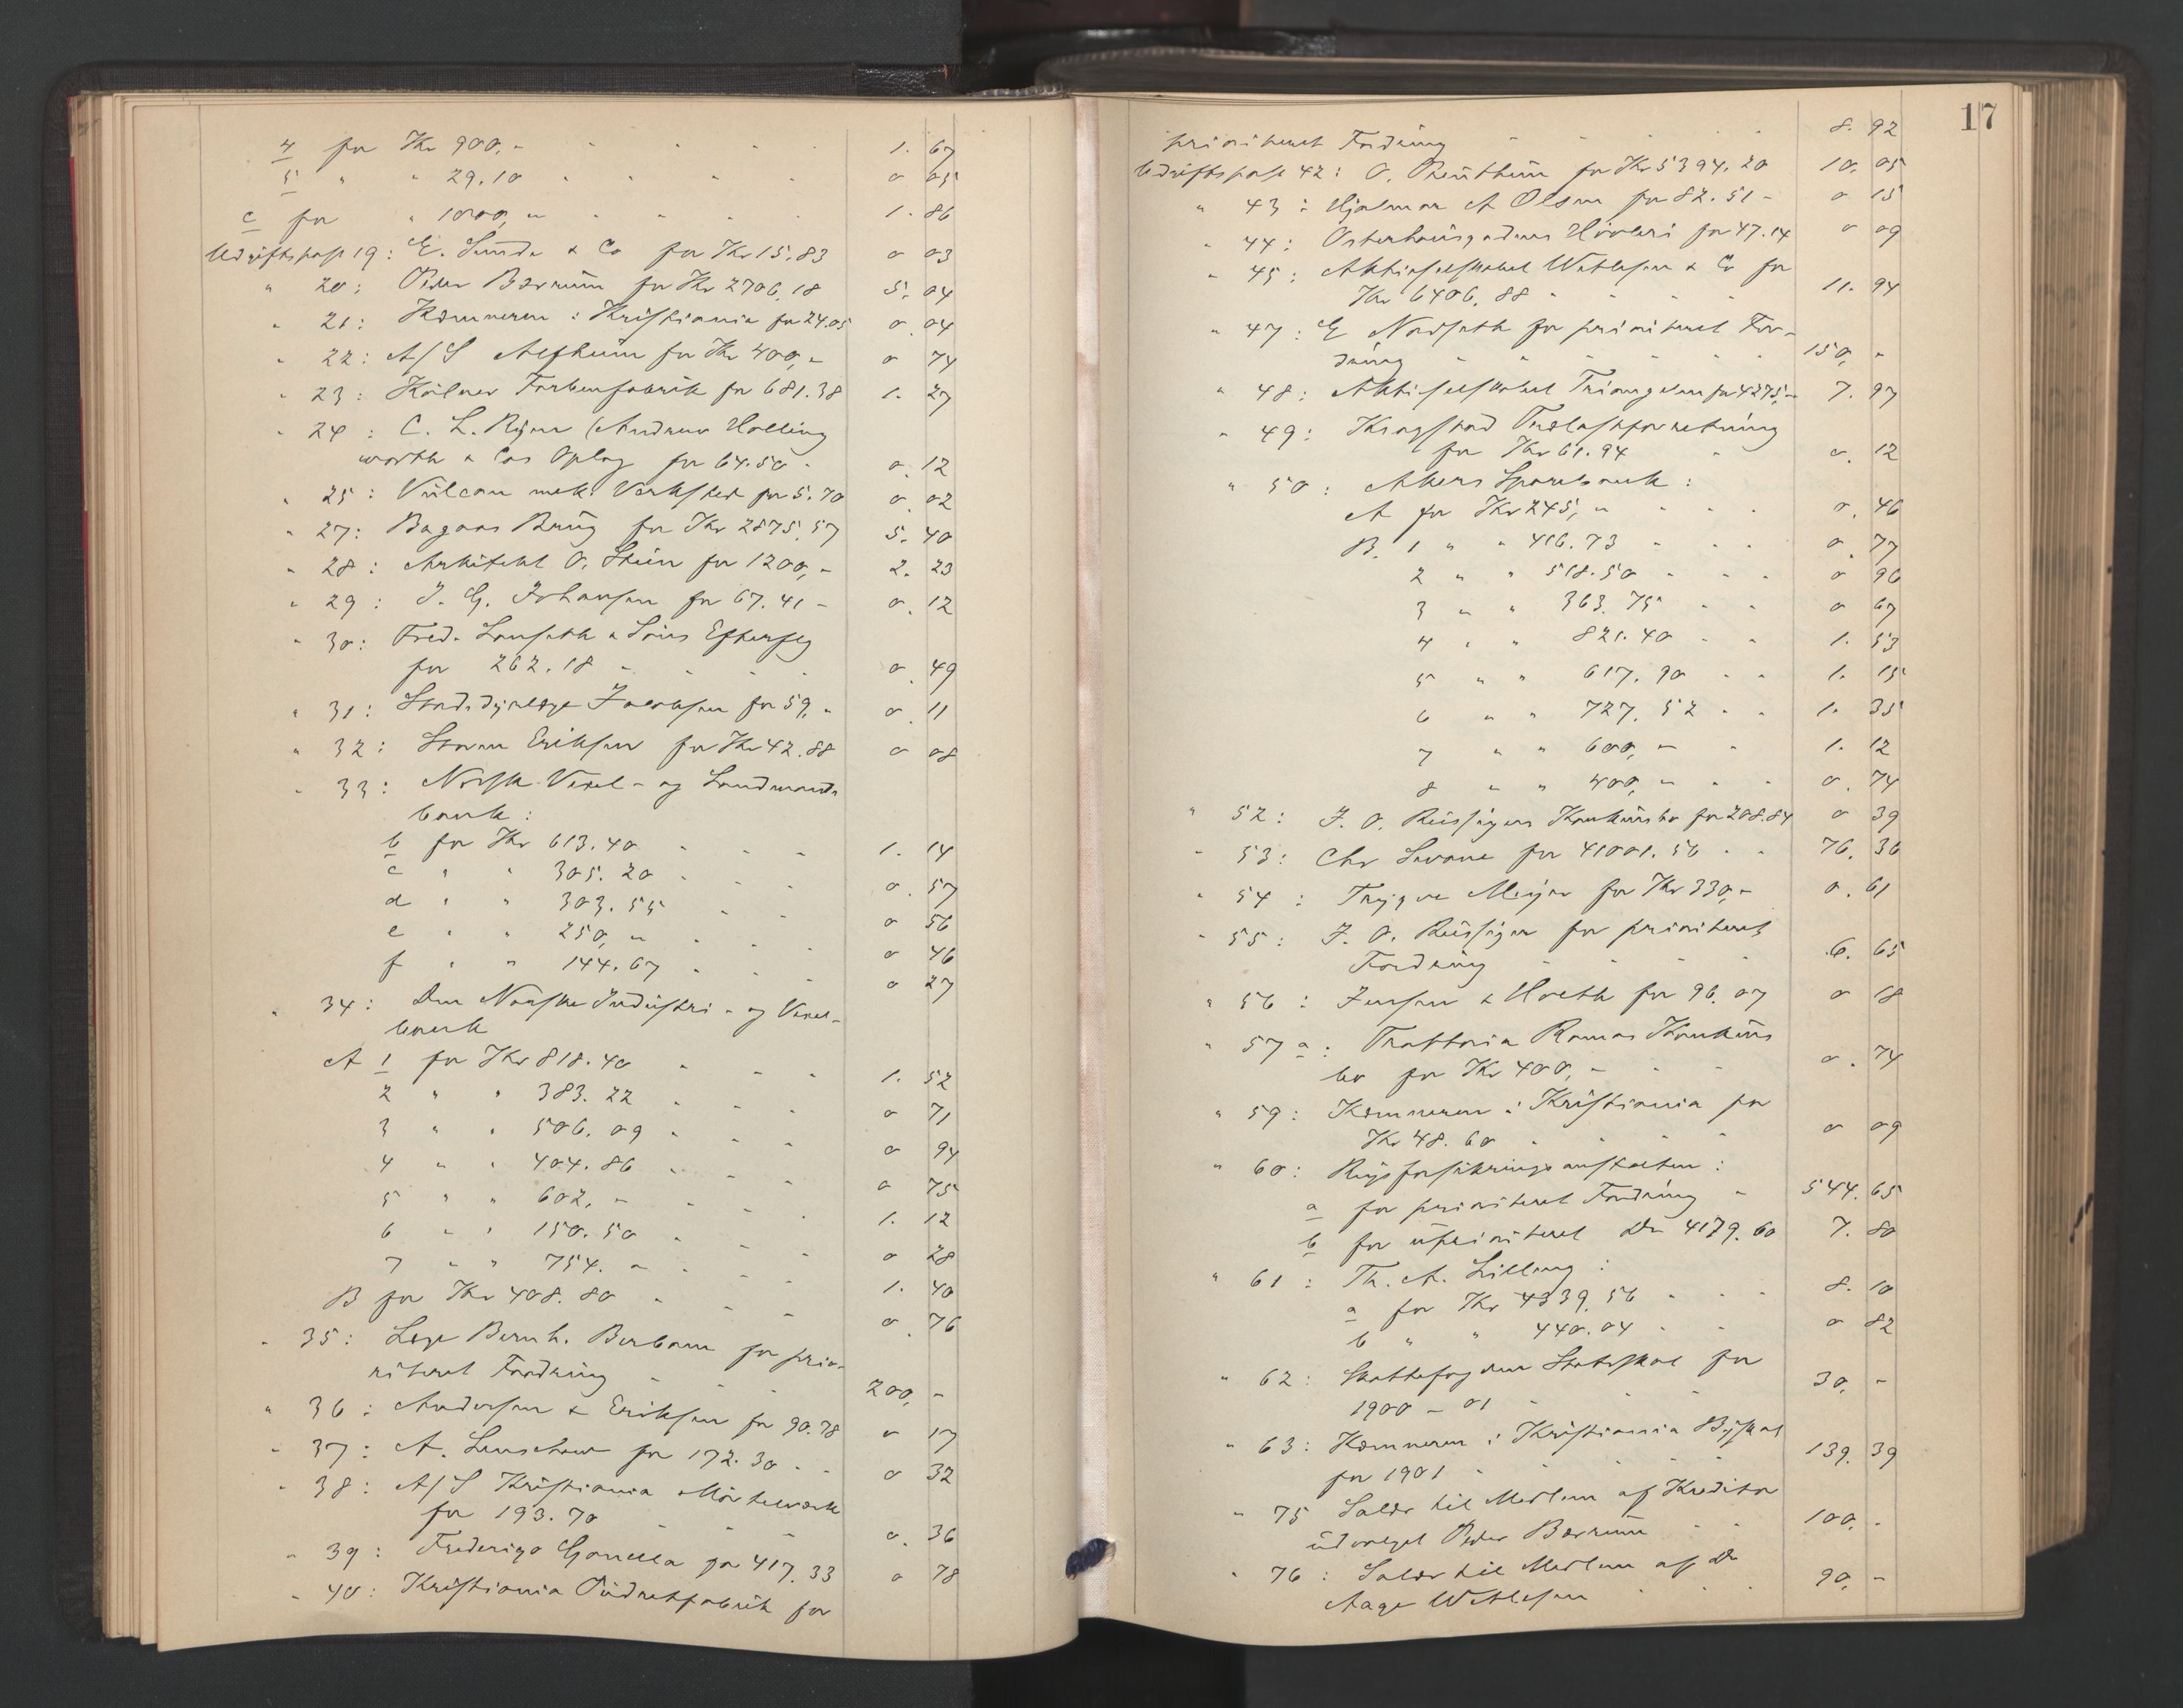 4 for Kr 900,- 1. 67
5 " " 29.10 0 05
c for " 1000,- 1. 86
Udgiftspost 19: E. Sunde & Co for Kr 15.83 0 03
" 20: Peder Bærrum for Kr 2706.18 5. 04
" 21: Kæmneren i Kristiania for 24.05 0. 04
" 22: A/S Alfheim for Kr 400,- 0 74
" 23: Kölner Farbenfabrik for 681.38 1. 27
" 24: C. L. (Andrew Holling
worth & Cos Oplag for 64.50 0. 12
" 25: Vulcan mek. Verksted for 5.70 0. 02
" 27: Bagaas Brug for Kr 2875.57 5. 40
" 28: Arkitekt O. Stein for 1200,- 2. 23
" 29: J. G. Johansen for 67.41 - 0. 12
" 30: Fred. Lanseth & Søns Efterflg
for 262.18 - 0. 49
" 31: Stadsdyrlæge Jacobsen for 59,- 0. 11
" 32: Storm Eriksen for Kr 42.88 0 08
" 33: Norsk Vexel- og Landmands
bank:
b for Kr 613.40 1. 14
c " " 305.20 0. 57
d " " 303.55 0 56
e " " 250,- 0 46
f " " 144.67 0 27
" 34: Den Norske Industri- og Vexel-
bank
A 1 for Kr 818.40 1. 52
2 " " 383.22 0 71
3 " " 506.09 0 94
4 " " 404.86 0 75
5 " " 602,- 1. 12
6 " " 150.50 0 28
7 " " 754.- 1. 40
B for Kr 408.80 0. 76
" 35: Læge Bernh. Berbom for prio-
riteret Fordring 200,-
" 36: Andersen & Eriksen for 90.78 0 17
" 37: A. Lenschow for 172.30 0 32
" 38: A/S Kristiania Mørtelværk
for 193.70 0. 36
" 39: Frederigo Gonella for 417.33 0 78
" 40: Kristiania Pudretfabrik for
17
prioriteret Fordring 8. 92
Udgiftspost 42: O. for Kr 5394.20 10. 05
" 43: Hjalmar A Olsen for 82.51 - 0 15
" 44: Osterhausgadens Høvleri for 47.14 0 09
" 45: Aktieselskabet Wetlesen & Co for
Kr 6406.88 11. 94
" 47: E Nordseth for prioriteret For-
dring 150,-
" 48: Aktieselskabet Triangelen for 4275,- 7. 97
" 49: Kragstad Trælastforretning
for Kr 61.94 0. 12
" 50: Akers Sparebank:
A for Kr 245,- 0. 46
B. 1 " " 416.73 0. 77
2 " " 518.50 0 96
3 " " 363.75 0 67
4 " " 821.40 1. 53
5 " " 617.90 1. 15
6 " " 727.52 1. 35
7 " " 600,- 1. 12
8 " " 400,- 0. 74
" 52: J. O. Reissigers Konkursbo for 208.84 0 39
" 53: Chr Svane for 41001.56 76. 36
" 54: Trygve Meyer for Kr 330,- 0. 61
" 55: J. O. Reissiger for prioriteret
Fordring 6. 65
" 56: Jensen & Hoeth for 96.07 0 18
" 57 a: Trattoria Romas Konkurs
bo for Kr 400,- 0. 74
" 59: Kæmneren i Kristiania for
Kr 48.60 0 09
" 60: Rigsforsikringsanstalten:
a for prioriteret Fordring 544. 65
b for uprioriteret Do 4179.60 7. 80
" 61: Th. A. Lilling:
a for Kr 4339.56 8. 10
b " " 440.04 0 82
" 62: Skattefogden Statsskat for
1900-01 30,-
" 63: Kæmneren i Kristiania Byskat
for 1901 139. 39
" 75 Salær til Medlem af Kreditor
udvalget Peder Bærrum 100,-
" 76: Salær til Medlem af Do
Aage Wetlesen 90,-